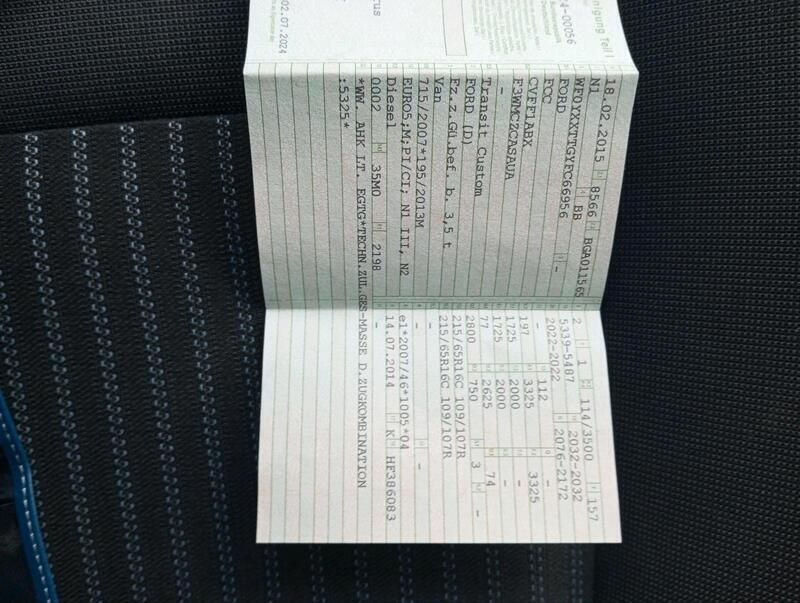 nigung Teil I
02.07.2024
18.02.2015 8566 BGA011565
N1 BB
WF0YXXTTGYFC66956
FORD
FCC -
CVFF1ABX
F3WMCZCASAUA
-
Transit Custom
FORD (D)
Fz.z.Gü.bef. b. 3,5 t
Van
715/2007*195/2013M
EURO5;M;PI/CI; N1 III, N2
Diesel
0002 35M0 2198
2 1 114/3500 157
5339-5487 2032-2032
2022-2022 2076-2172
- 112 -
197 3325 3325
1725 2000 -
1725 2000 -
77 2625 74
2800 750 3 -
215/65R16C 109/107R
215/65R16C 109/107R
- -
e1*2007/46*1005*04
14.07.2014 K HF386083
-
*WW. AHK LT. EGTG*TECHN.ZUL.GES-MASSE D.ZUGKOMBINATION
:5325*